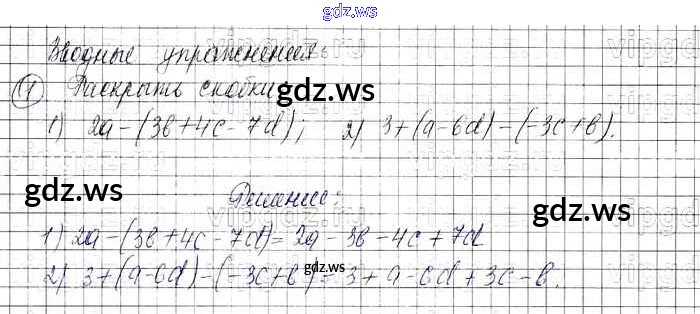 gdz.ws
Вводные упражнения:
① Раскрыть скобки:
gdz.ws
1) 2a-(3b+4c-7d); 2) 3+(a-6d)-(-3c+b).
gdz.ws gdz.ws
Решение:
1) 2a-(3b+4c-7d)=2a-3b-4c+7d
2) 3+(a-6d)-(-3c+b)=3+a-6d+3c-b.
gdz.ws